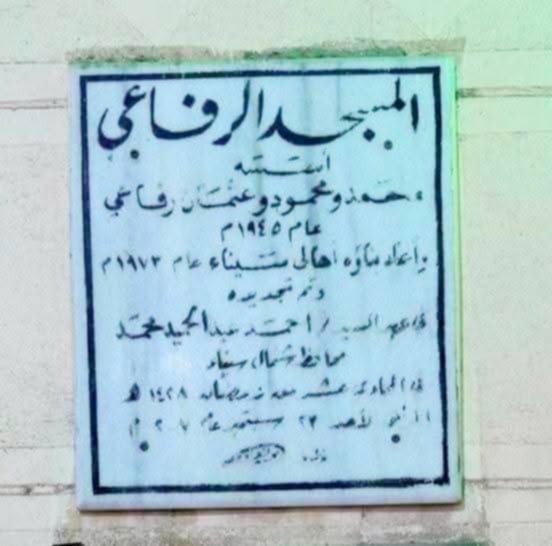 المسجد الرفاعي
أسسه
محمد ومحمود وعثمان رفاعي
عام ١٩٤٥م
وأعاد بناؤه أهالى سيناء عام ١٩٧٣م
وتم تجديده
في عهد السيد / احمد عبد الحميد محمد
محافظ شمال سيناء
في الحادي عشر من رمضان ١٤٢٨ هـ
الأحد ٢٣ سبتمبر عام ٢٠٠٧ م